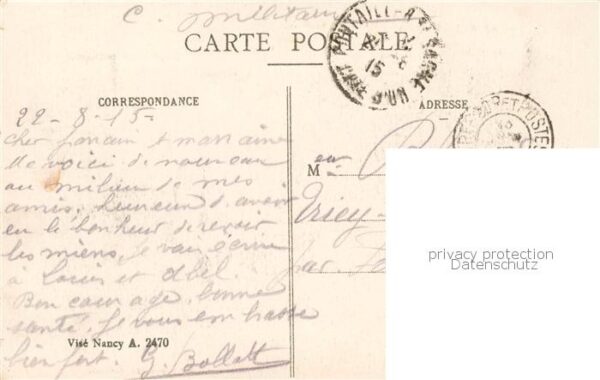 C. Militaire
CARTE POSTALE
CORRESPONDANCE
ADRESSE
22-8-15-
Cher parrain et marraine
Me voici de nouveau
au milieu de mes
amis, heureux d'avoir
eu le bonheur de revoir
les miens, je vais écrire
à Louis et Abel.
Bon courage, bonne
santé. Je vous embrasse
bien fort. G. Bollatt
M
par
Visé Nancy A. 2470
privacy protection
Datenschutz